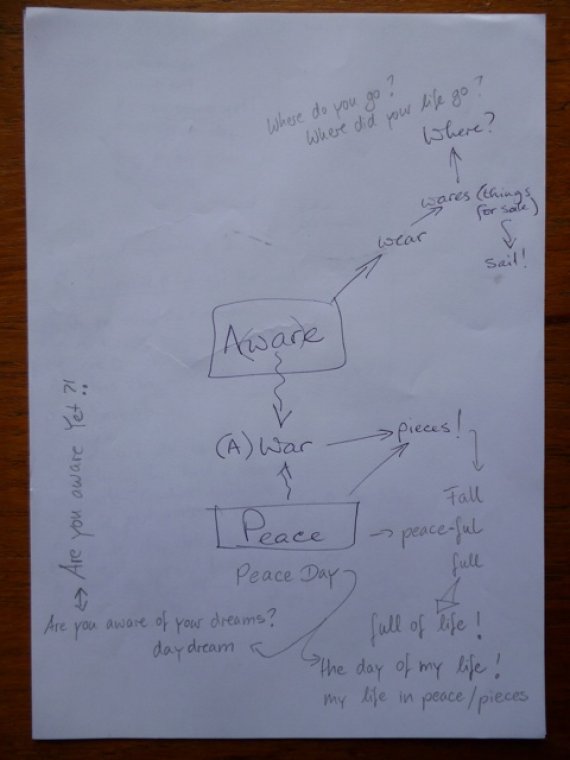 Where do you go?
Where did your life go?
Where?
wares (things
for sale)
wear
sail!
A(war)e
(A) War
pieces!
Fall
Peace
peace-ful
full
Peace Day
Are you aware yet?!
Are you aware of your dreams?
daydream
full of life!
the day of my life!
my life in peace/pieces